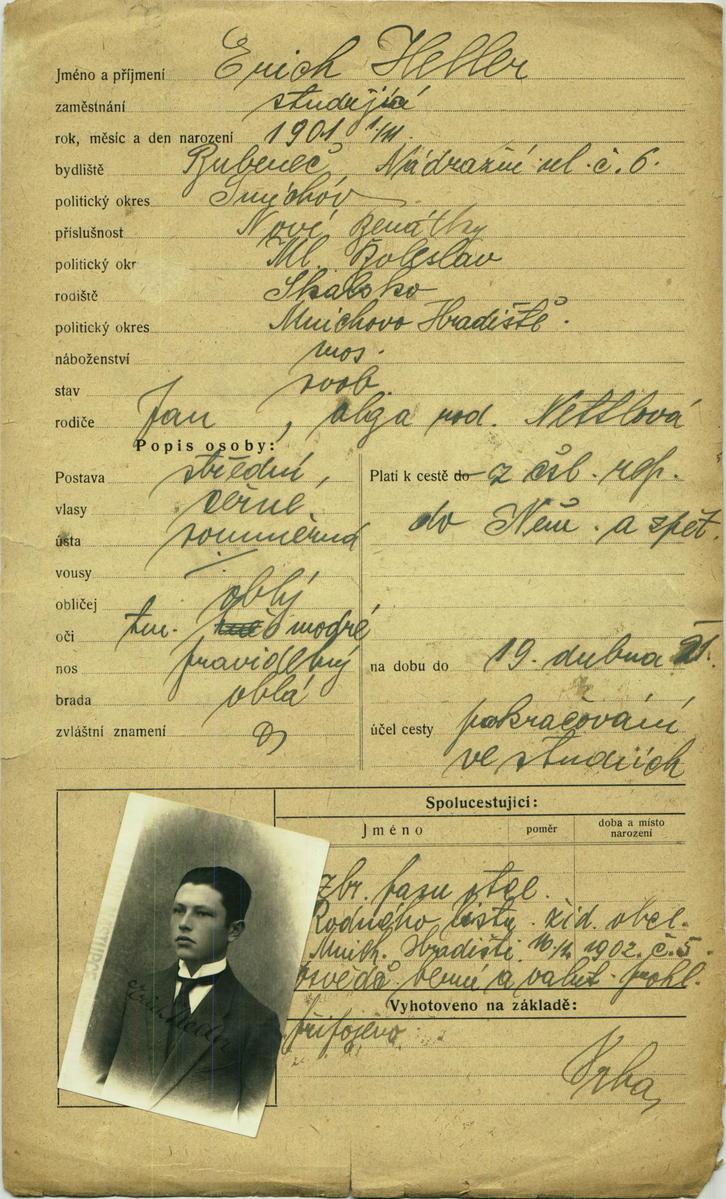 Jméno a příjmení Erich Heller
zaměstnání studující
rok, měsíc a den narození 1901
bydliště Bubeneč Nádražní ul. č. 6.
politický okres Smíchov
příslušnost Nové Benátky
politický okr Ml. Boleslav
rodiště Skalsko
politický okres Mnichovo Hradiště.
náboženství mos.
stav svob.
rodiče Jan, Olga rod. Nettlová
Popis osoby:
Postava střední,
vlasy černé
ústa souměrná
vousy /
obličej oblý
oči tm. modré
nos pravidelný
brada oblá
zvláštní znamení
Platí k cestě do z čsl. rep.
do Něm. a zpět.
na dobu do 19. dubna 21.
účel cesty pokračování
ve studiích
Spolucestující:
Jméno poměr doba a místo narození
zbr. pasu
Rodného listu žid. obce.
Mnich. Hradiště 1902. č. 5
osvědč. berní a prohl.
Vyhotoveno na základě:
připojeno
Vrba
Erich Heller